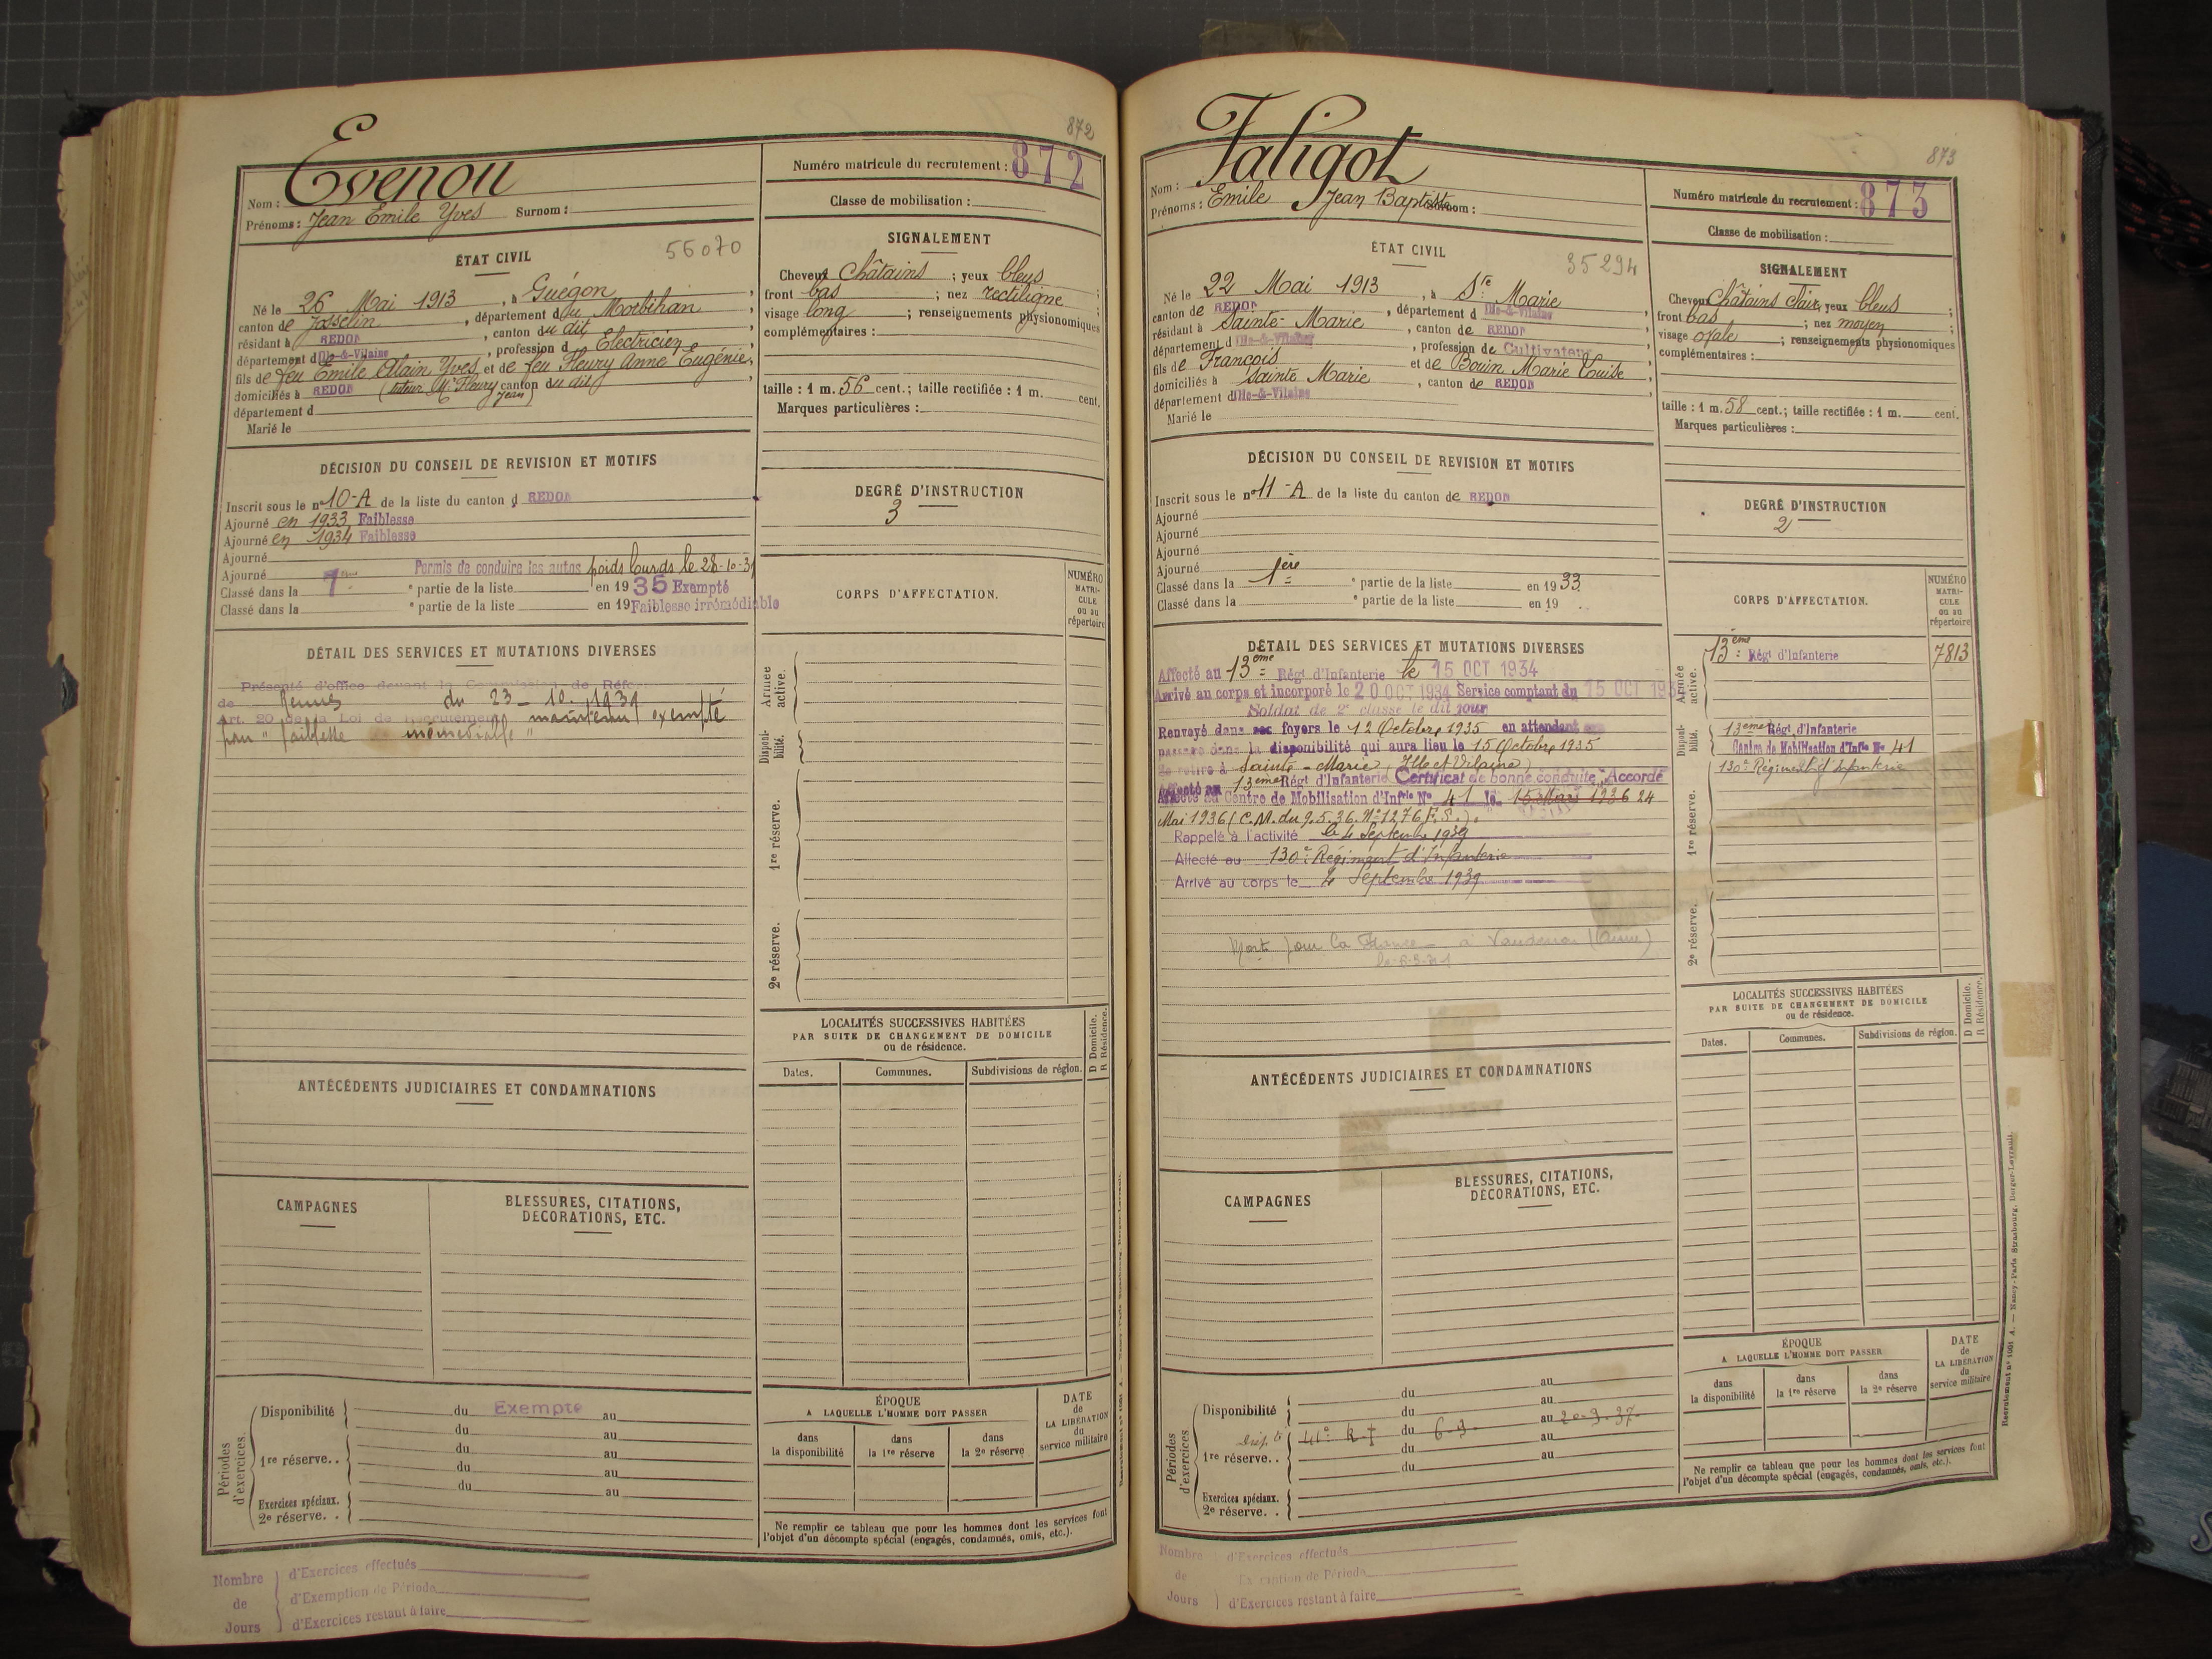 872
Evenou
Nom :
Prénoms : Jean Emile Yves Surnom :
Numéro matricule du recrutement : 872
Classe de mobilisation :
ÉTAT CIVIL
56070
Né le 26 Mai 1913, à Guégon,
canton de Josselin, département du Morbihan,
résidant à REDON, canton du dit,
département d'Ille-&-Vilaine, profession d'Electricien,
fils de feu Emile Alain Yves et de feu Fleury Anne Eugénie,
domiciliés à REDON (tuteur Mr Fleury Jean) canton du dit,
département d
Marié le
SIGNALEMENT
Cheveux Châtains ; yeux bleus ;
front bas ; nez rectiligne ;
visage long ; renseignements physionomiques
complémentaires :
taille : 1 m. 56 cent.; taille rectifiée : 1 m. cent.
Marques particulières :
DÉCISION DU CONSEIL DE REVISION ET MOTIFS
Inscrit sous le n° 10-A de la liste du canton d REDON
Ajourné en 1933 Faiblesse
Ajourné en 1934 Faiblesse
Ajourné
Ajourné Permis de conduire les autos poids lourds le 28-10-31
Classé dans la 7ème e partie de la liste en 1935 Exempté
Classé dans la e partie de la liste en 19 Faiblesse irrémédiable
DEGRÉ D'INSTRUCTION
3
CORPS D'AFFECTATION.
NUMÉRO MATRICULE ou au répertoire
DÉTAIL DES SERVICES ET MUTATIONS DIVERSES
Présenté d'office devant la Commission de Réforme
de Rennes du 23-10-1939
Art. 20 de la Loi de Recrutement maintenu exempté
pour "faiblesse irrémédiable"
Armée active.
Disponibilité.
1re réserve.
2e réserve.
LOCALITÉS SUCCESSIVES HABITÉES
PAR SUITE DE CHANGEMENT DE DOMICILE
ou de résidence.
D Domicile. R Résidence.
Dates. Communes. Subdivisions de région.
ANTÉCÉDENTS JUDICIAIRES ET CONDAMNATIONS
CAMPAGNES
BLESSURES, CITATIONS,
DÉCORATIONS, ETC.
Périodes d'exercices.
Disponibilité du Exempté au
du au
1re réserve.. du au
du au
Exercices spéciaux. du au
2e réserve. .
ÉPOQUE
A LAQUELLE L'HOMME DOIT PASSER
dans la disponibilité
dans la 1re réserve
dans la 2e réserve
DATE de LA LIBÉRATION du service militaire
Ne remplir ce tableau que pour les hommes dont les services font
l'objet d'un décompte spécial (engagés, condamnés, omis, etc.).
Nombre de Jours
d'Exercices effectués
d'Exemption de Période
d'Exercices restant à faire
873
Faligot
Nom :
Prénoms : Emile Jean Baptiste Surnom :
Numéro matricule du recrutement : 873
Classe de mobilisation :
ÉTAT CIVIL
35294
Né le 22 Mai 1913, à Ste Marie,
canton de REDON, département d'Ille-&-Vilaine,
résidant à Sainte-Marie, canton de REDON,
département d'Ille-&-Vilaine, profession de Cultivateur,
fils de François et de Bouin Marie Louise,
domiciliés à Sainte Marie, canton de REDON,
département d'Ille-&-Vilaine
Marié le
SIGNALEMENT
Cheveux Châtains clairs yeux bleus ;
front bas ; nez moyen ;
visage ovale ; renseignements physionomiques
complémentaires :
taille : 1 m. 58 cent.; taille rectifiée : 1 m. cent.
Marques particulières :
DÉCISION DU CONSEIL DE REVISION ET MOTIFS
Inscrit sous le n° 11-A de la liste du canton de REDON
Ajourné
Ajourné
Ajourné
Ajourné
Classé dans la 1ère e partie de la liste en 1933
Classé dans la e partie de la liste en 19
DEGRÉ D'INSTRUCTION
2
CORPS D'AFFECTATION.
NUMÉRO MATRICULE ou au répertoire
DÉTAIL DES SERVICES ET MUTATIONS DIVERSES
Affecté au 13ème Régt d'Infanterie le 15 OCT 1934
Arrivé au corps et incorporé le 20 OCT 1934 Service comptant du 15 OCT 193
Soldat de 2e classe le dit jour
Renvoyé dans ses foyers le 12 Octobre 1935 en attendant son
passage dans la disponibilité qui aura lieu le 15 Octobre 1935
Se retire à Sainte-Marie (Ille et Vilaine)
Affecté au 13ème Régt d'Infanterie Certificat de bonne conduite "Accordé"
Affecté au Centre de Mobilisation d'Infrie No 41 le 15 Mars 1936 24
Mai 1936 (C.M. du 9.5.36. N° 1276 F.S.).
Rappelé à l'activité le 4 Septembre 1939
Affecté au 130e Régiment d'Infanterie
Arrivé au corps le 4 Septembre 1939
Mort pour la France à (Aisne)
Armée active.
13ème Régt d'Infanterie 7813
Disponibilité.
13ème Régt d'Infanterie
Centre de Mobilisation d'Infie No 41
130e Régiment d'Infanterie
1re réserve.
2e réserve.
LOCALITÉS SUCCESSIVES HABITÉES
PAR SUITE DE CHANGEMENT DE DOMICILE
ou de résidence.
D Domicile. R Résidence.
Dates. Communes. Subdivisions de région.
ANTÉCÉDENTS JUDICIAIRES ET CONDAMNATIONS
CAMPAGNES
BLESSURES, CITATIONS,
DÉCORATIONS, ETC.
Périodes d'exercices.
Disponibilité du au
du au
41e R I du 6-9- au 20-9-37-
1re réserve.. du au
du au
Exercices spéciaux.
2e réserve. .
ÉPOQUE
A LAQUELLE L'HOMME DOIT PASSER
dans la disponibilité
dans la 1re réserve
dans la 2e réserve
DATE de LA LIBÉRATION du service militaire
Ne remplir ce tableau que pour les hommes dont les services font
l'objet d'un décompte spécial (engagés, condamnés, omis, etc.).
Recrutement n° 1061 A. — Nancy-Paris-Strasbourg, Berger-Levrault.
Nombre de Jours
d'Exercices effectués
Exemption de Période
d'Exercices restant à faire